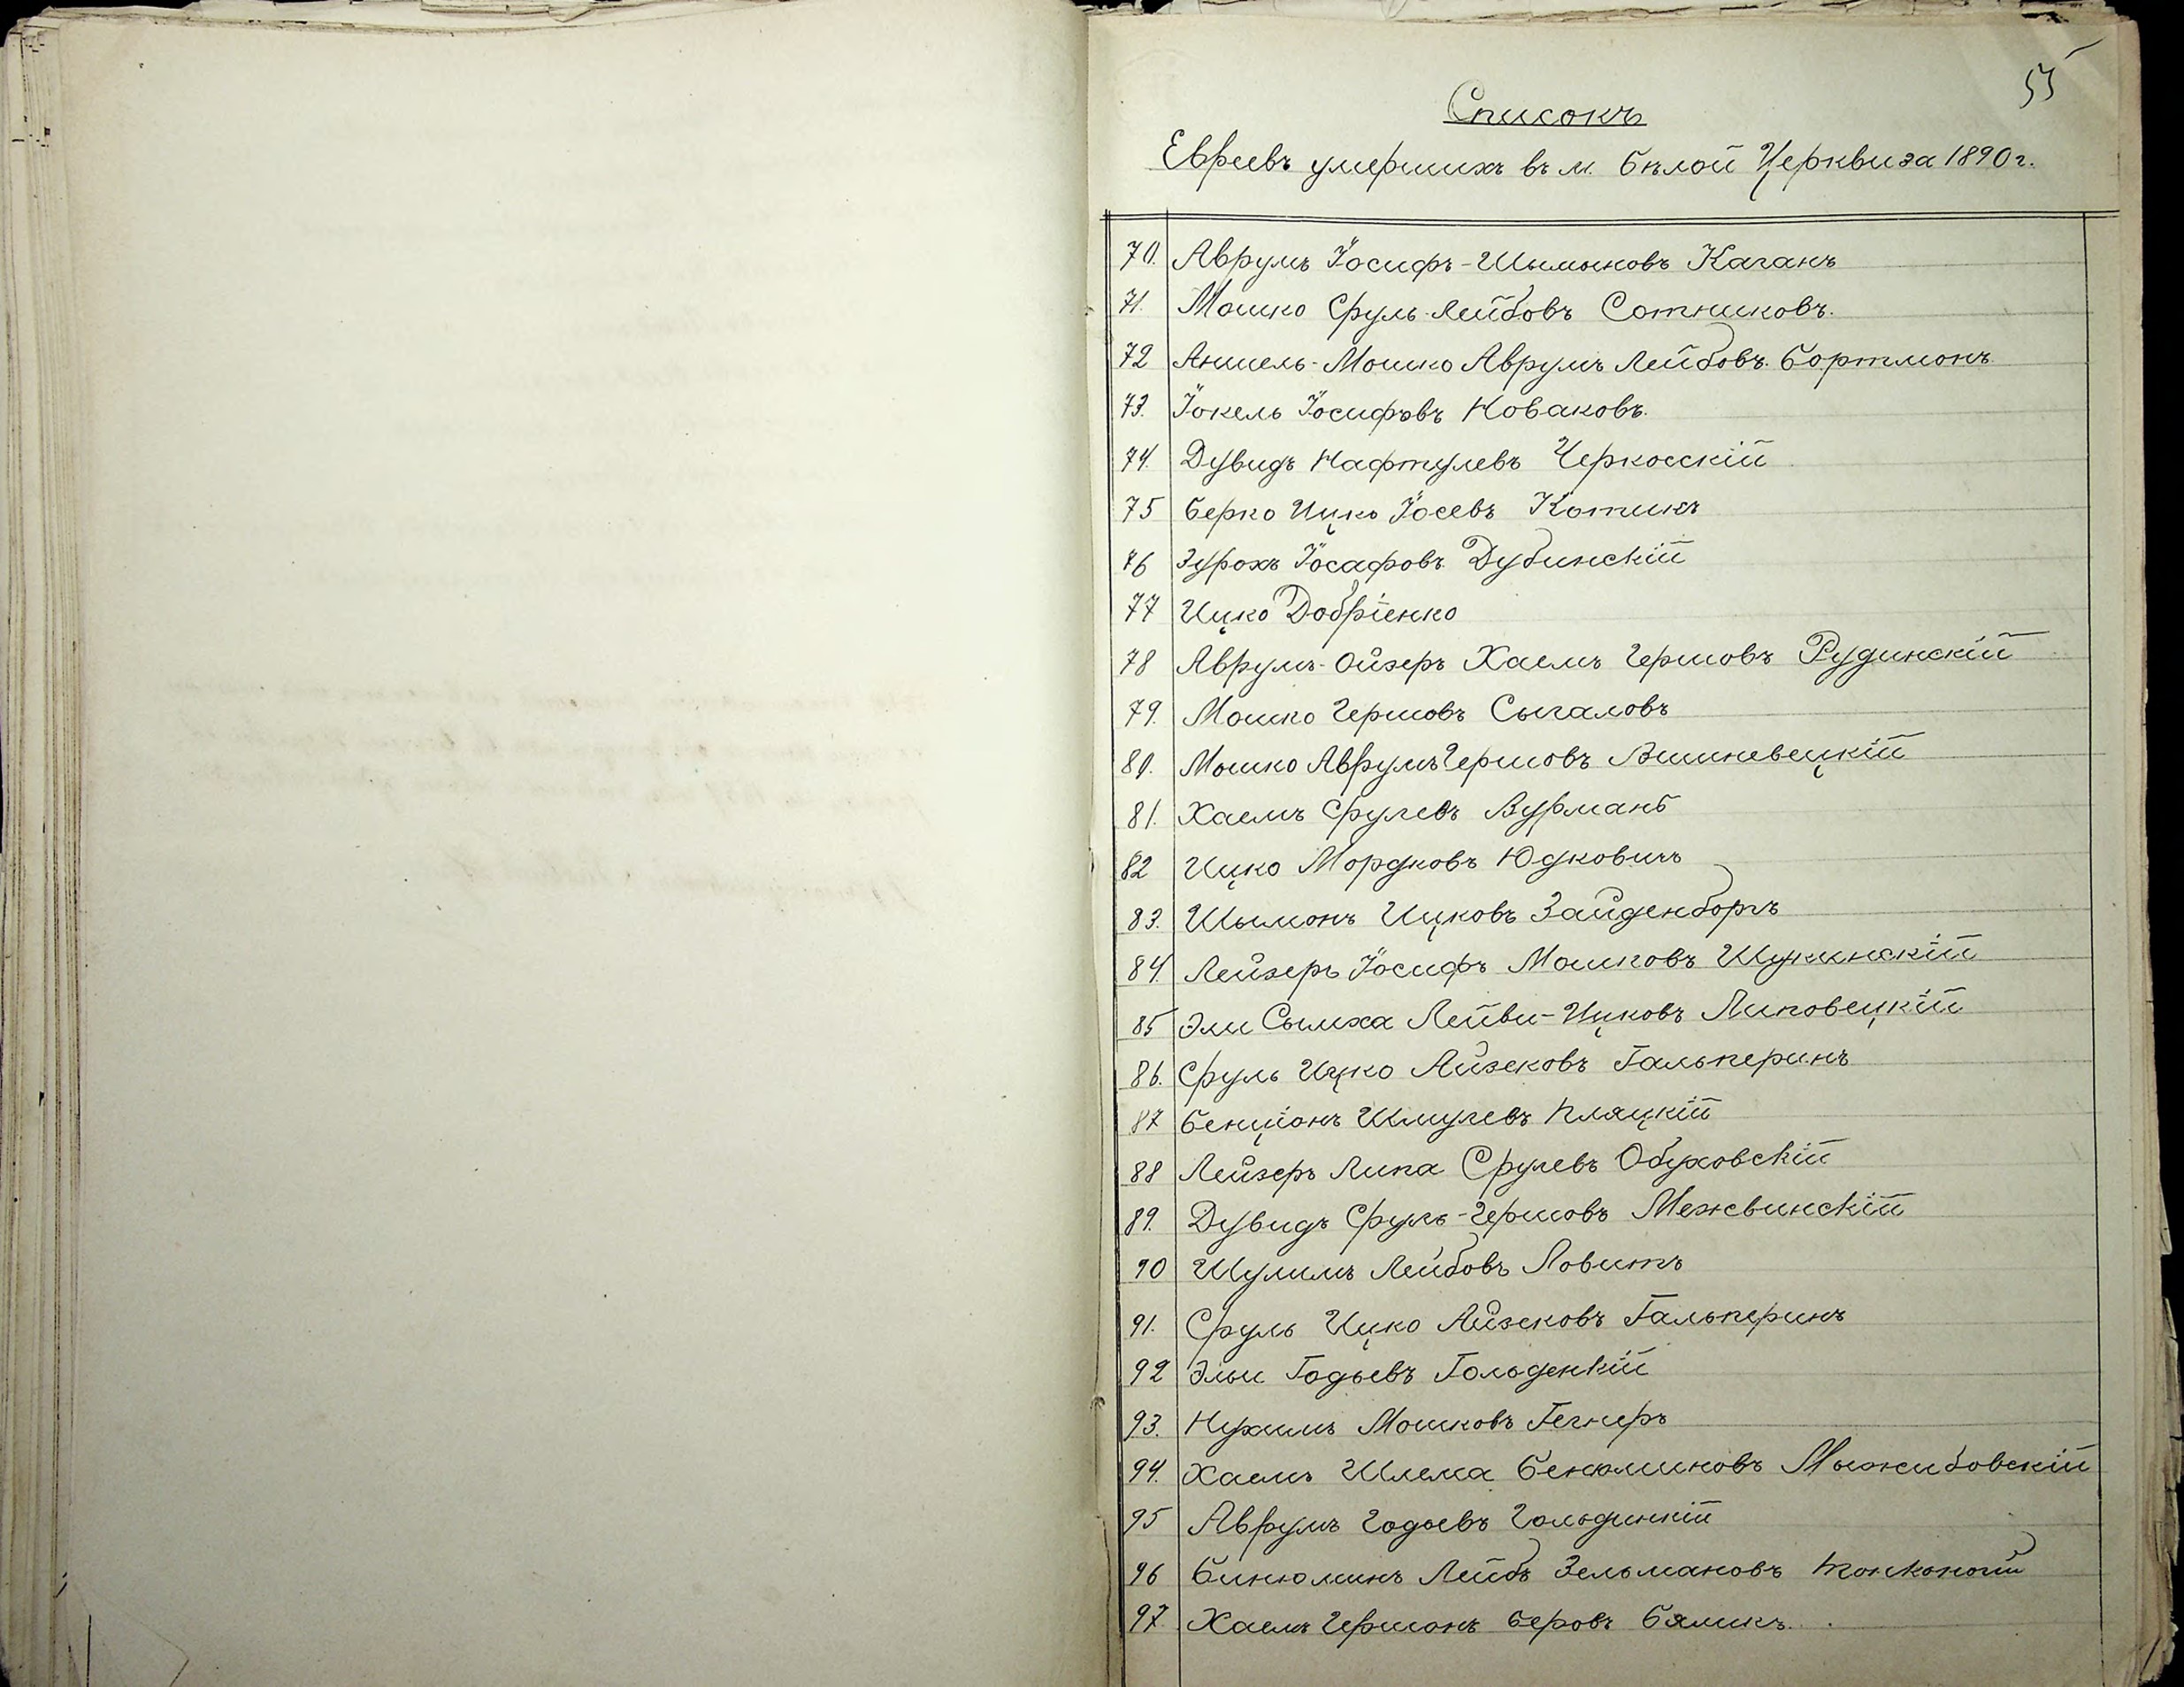 55
Списокъ
Евреевъ умершихъ въ м. Бѣлой Церкви за 1890 г.
70. Аврумъ Іосифъ-Шымоновъ Каганъ
71. Мошко Сруль-Лейбовъ Сотниковъ.
72 Аншель-Мошко Аврумъ Лейбовъ Бортмонъ
73. Іокель Іосифовъ Новаковъ.
74. Дувидъ Нафтулевъ Черкосскій
75 Берко Ицко Іосевъ Котикъ
76 Зурохъ Іосафовъ Дубинскій
77 Ицко Добріенко
78 Аврумъ-Ойзеръ Хаемъ Гершовъ Рудинскій
79. Мошко Гершовъ Сыгаловъ
80. Мошко Аврумъ Гершовъ Вишневецкій
81. Хаемъ Срулевъ Вурманъ
82 Ицко Мордковъ Юдковичъ
83. Шымонъ Ицковъ Зайденборгъ
84. Лейзеръ Іосифъ Мошковъ
85 Эли Сымха Лейви-Ицковъ Липовецкій
86. Сруль Ицко Айзековъ Гальперинъ
87 Бенціонъ Шмулевъ Пляцкій
88 Лейзеръ Липа Срулевъ Обуховскій
89. Дувидъ Сруль-Гершовъ Межвинскій
90 Шулимъ Лейбовъ Ловитъ
91. Сруль Ицко Айзековъ Гальперинъ
92 Эльи Годьевъ Гольденкій
93. Нухимъ Мошковъ Гегнеръ
94. Хаемъ Шлема Бенюминовъ Мыжибовскій
95 Аврумъ Годьевъ Гольдинкій
96 Бинюминъ Лейбъ Зельмановъ Тонконогій
97. Хаемъ Гершонъ Беровъ Бяликъ.